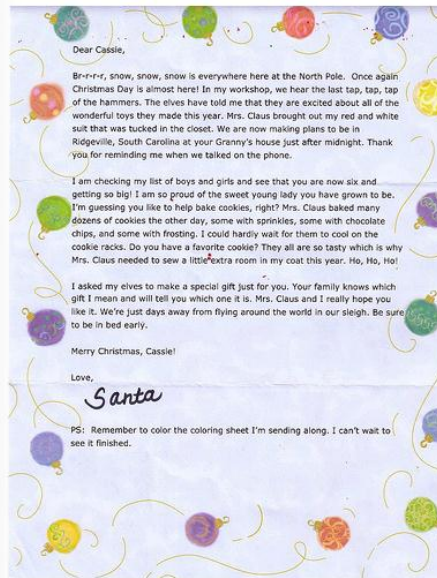 Dear Cassie,
Br-r-r-r, snow, snow, snow is everywhere here at the North Pole.  Once again
Christmas Day is almost here! In my workshop, we hear the last tap, tap, tap
of the hammers. The elves have told me that they are excited about all of the
wonderful toys they made this year. Mrs. Claus brought out my red and white
suit that was tucked in the closet. We are now making plans to be in
Ridgeville, South Carolina at your Granny's house just after midnight. Thank
you for reminding me when we talked on the phone.
I am checking my list of boys and girls and see that you are now six and
getting so big! I am so proud of the sweet young lady you have grown to be.
I'm guessing you like to help bake cookies, right? Mrs. Claus baked many
dozens of cookies the other day, some with sprinkles, some with chocolate
chips, and some with frosting. I could hardly wait for them to cool on the
cookie racks. Do you have a favorite cookie? They all are so tasty which is why
Mrs. Claus needed to sew a little extra room in my coat this year. Ho, Ho, Ho!
I asked my elves to make a special gift just for you. Your family knows which
gift I mean and will tell you which one it is. Mrs. Claus and I really hope you
like it. We're just days away from flying around the world in our sleigh. Be sure
to be in bed early.
Merry Christmas, Cassie!
Love,
Santa
PS:  Remember to color the coloring sheet I'm sending along. I can't wait to
see it finished.